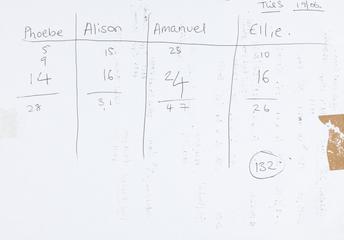 TUES 17/06
Phoebe Alison Amanuel Ellie.
5 15 23 10
9
14 16 24 16
28 31 47 26
132